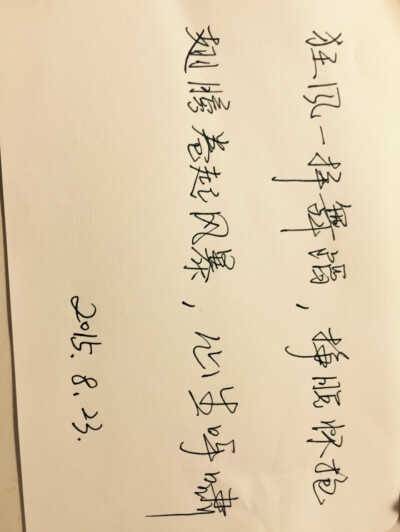 狂风一样舞蹈，挣脱怀抱
翅膀卷起风暴，心生呼啸
2015.8.23.